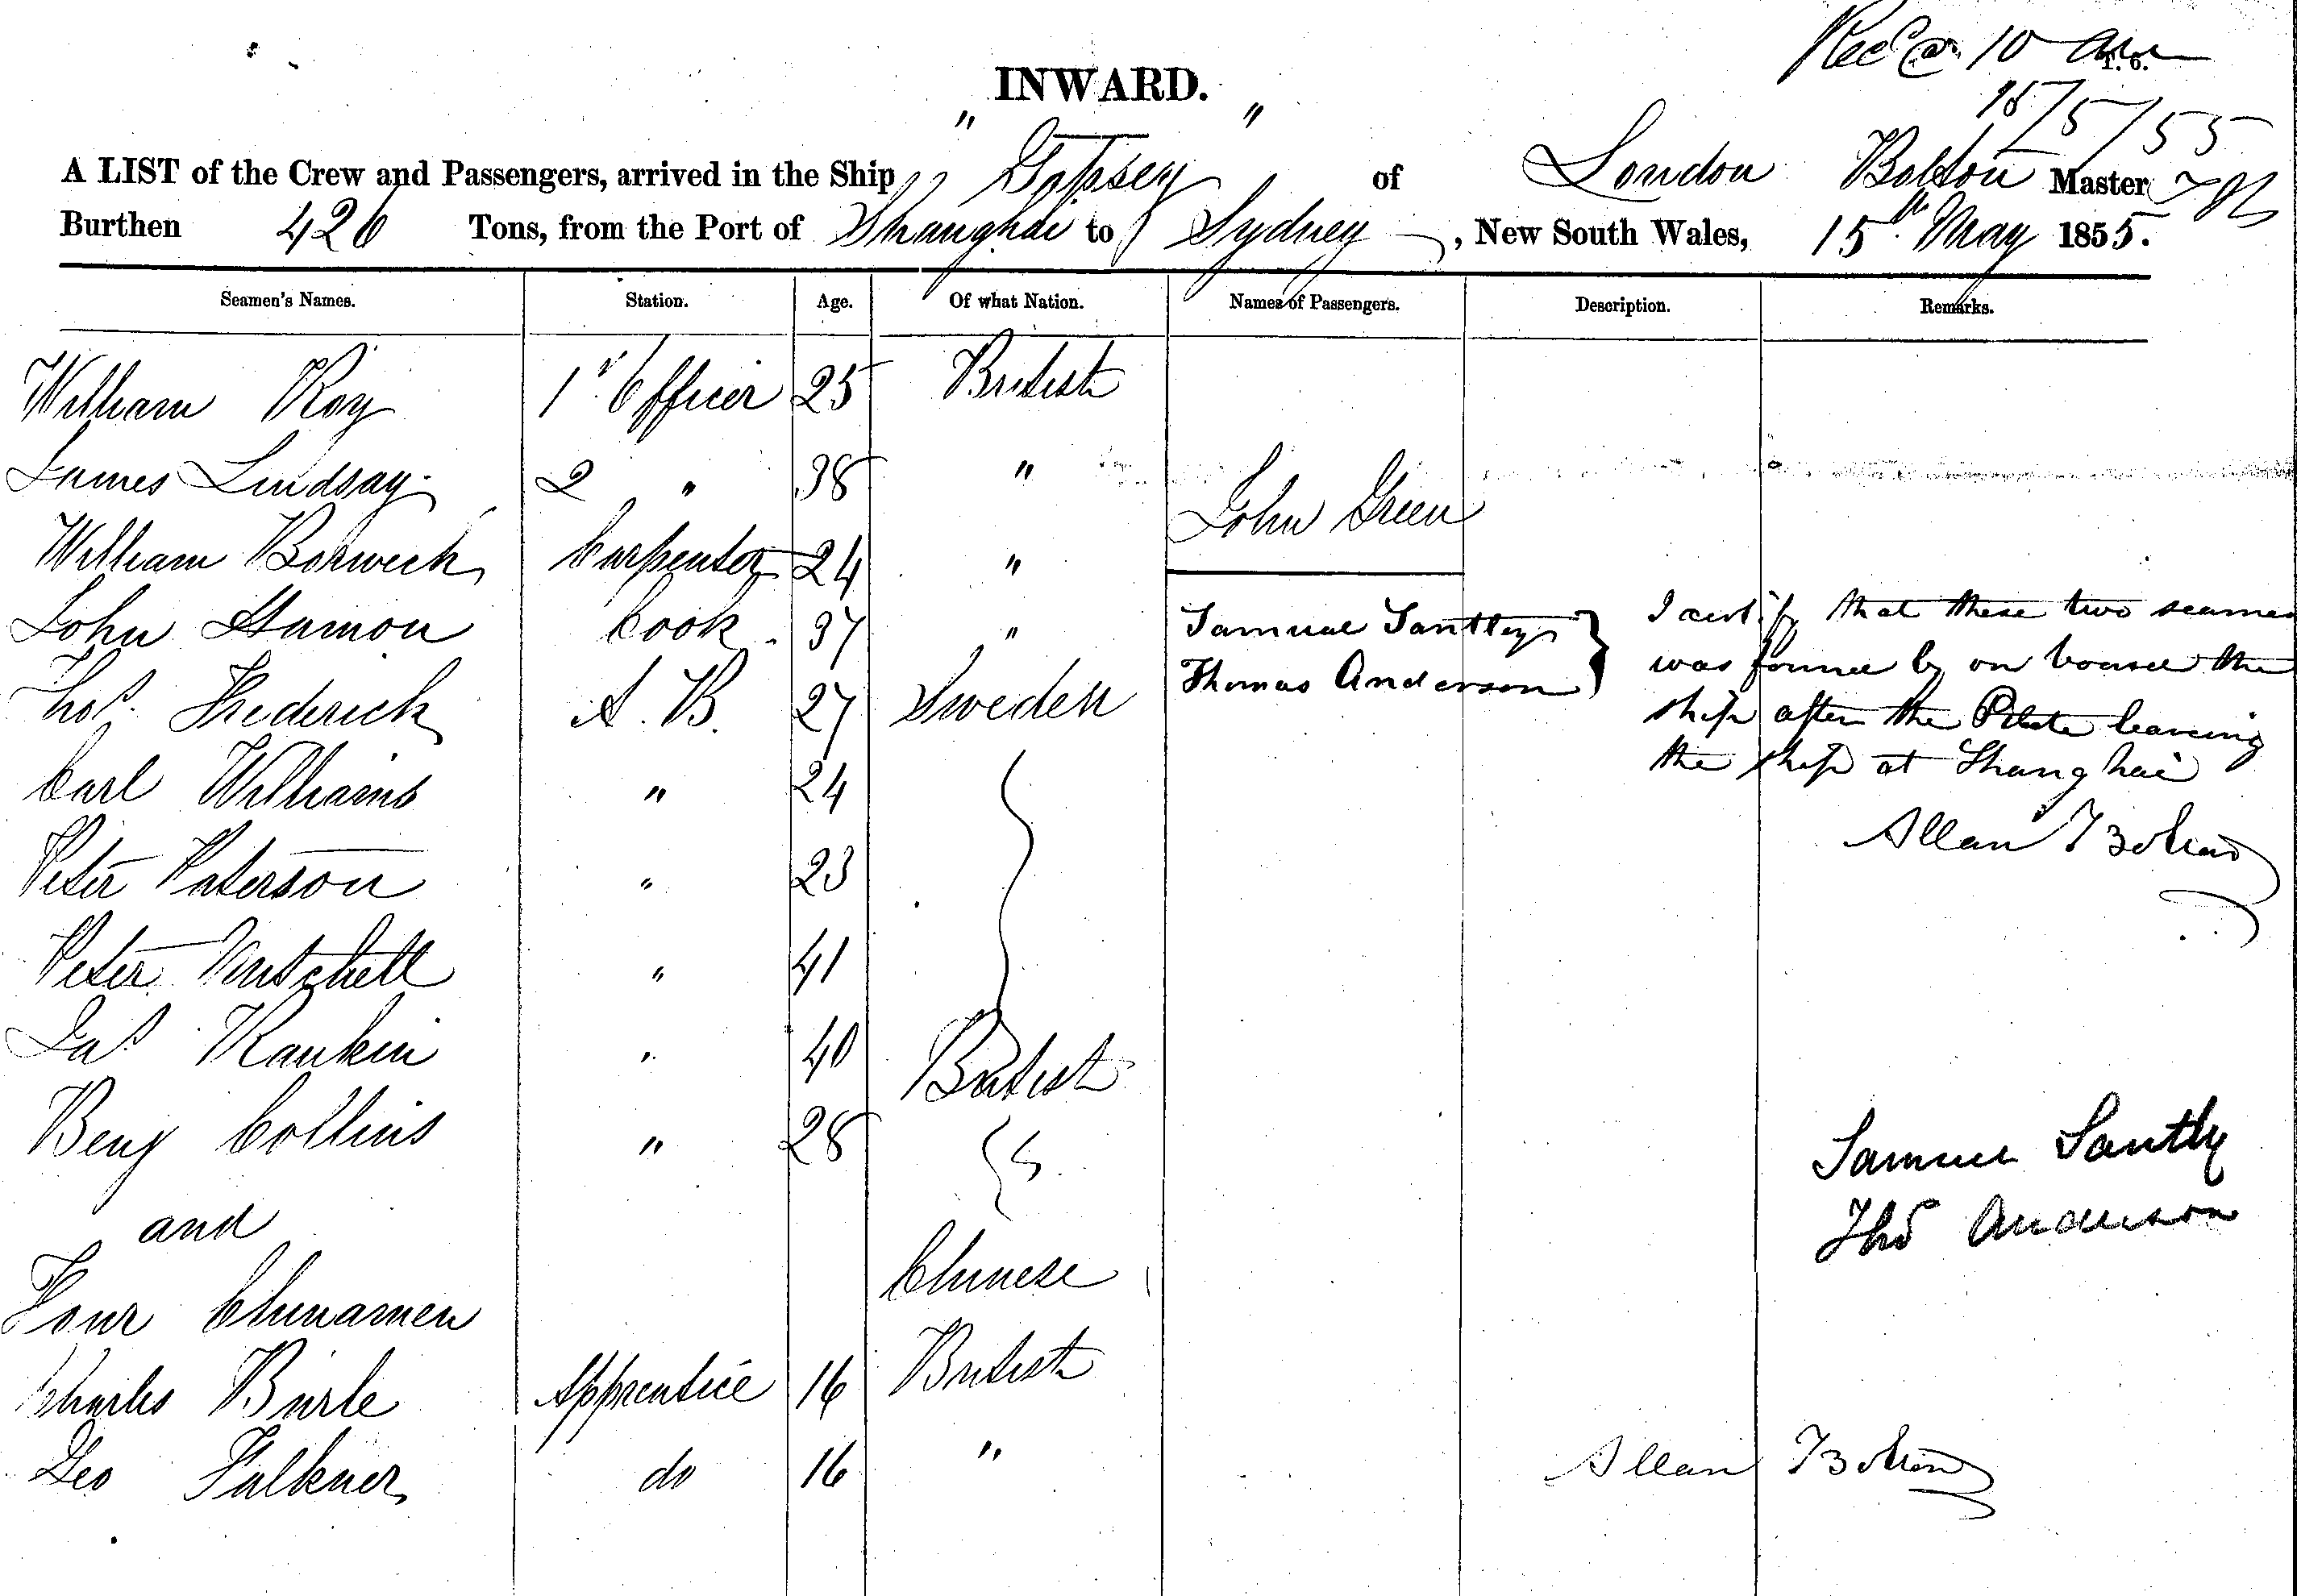 Recd @ 10 am
T. 6.
15/5/55
INWARD.
A LIST of the Crew and Passengers, arrived in the Ship "Topsey" of London Bolton Master
Burthen 426 Tons, from the Port of Shanghai to Sydney, New South Wales, 15th May 1855.
Seamen's Names. Station. Age. Of what Nation. Names of Passengers. Description. Remarks.
William Roy 1st Officer 25 British
James Lindsay 2 " 38 "
John Green
William Borwick Carpenter 24 "
John Hamon Cook 37 "
Samual Santley } I certify that these two seamen
Thomas Anderson was found by on board the
Thos. Frederick A. B. 27 Sweden
ship after the Pilote leaveing
the ship at Shanghai
Carl Williams " 24
Allan Bolton
Peter Paterson " 23
Peter Mitchell " 41
Jas Rankin " 40 British
Benj Collins " 28
Samuel Santly
Thos Anderson
and
Four Chinamen Chinese
Charles Birle Apprentice 16 British
Geo Falkner do 16 "
Allan Bolton